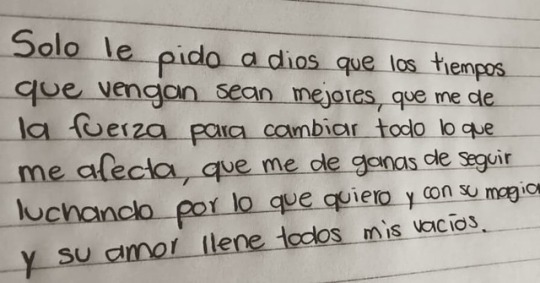 Solo le pido a dios que los tiempos
que vengan sean mejores, que me de
la fuerza para cambiar todo lo que
me afecta, que me de ganas de seguir
luchando por lo que quiero y con su magia
y su amor llene todos mis vacíos.